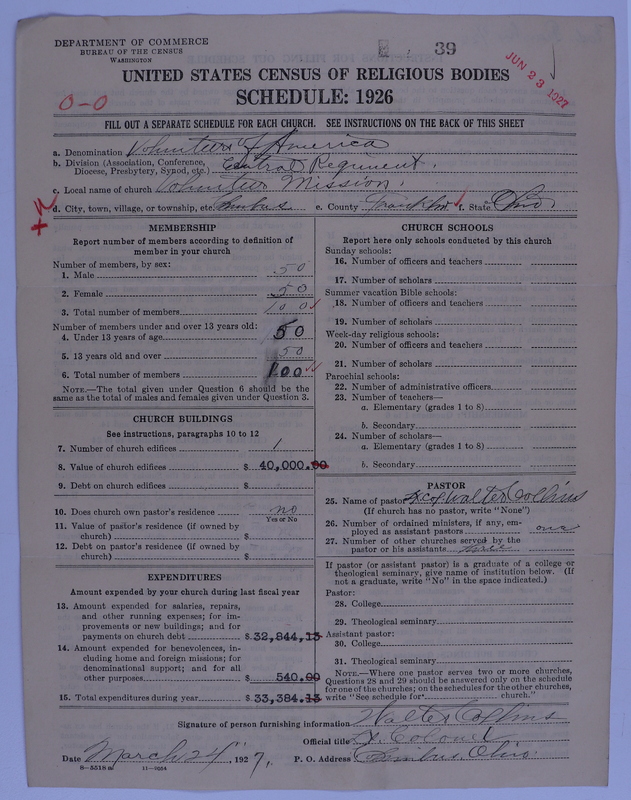 DEPARTMENT OF COMMERCE
BUREAU OF THE CENSUS
WASHINGTON
39
JUN 23 1927
UNITED STATES CENSUS OF RELIGIOUS BODIES
SCHEDULE: 1926
0-0
FILL OUT A SEPARATE SCHEDULE FOR EACH CHURCH. SEE INSTRUCTIONS ON THE BACK OF THIS SHEET
a. Denomination Volunteers of America
b. Division (Association, Conference, Diocese, Presbytery, Synod, etc.) Central Regiment.
c. Local name of church Volunteer Mission.
d. City, town, village, or township, etc. Columbus e. County Franklin f. State Ohio
MEMBERSHIP
Report number of members according to definition of
member in your church
Number of members, by sex:
1. Male 50
2. Female 50
3. Total number of members 100
Number of members under and over 13 years old:
4. Under 13 years of age 50
5. 13 years old and over 50
6. Total number of members 100
NOTE.—The total given under Question 6 should be the
same as the total of males and females given under Question 3.
CHURCH BUILDINGS
See instructions, paragraphs 10 to 12
7. Number of church edifices 1
8. Value of church edifices $ 40,000.00
9. Debt on church edifices $
10. Does church own pastor's residence no
Yes or No
11. Value of pastor's residence (if owned by
church) $
12. Debt on pastor's residence (if owned by
church) $
EXPENDITURES
Amount expended by your church during last fiscal year
13. Amount expended for salaries, repairs,
and other running expenses; for im-
provements or new buildings; and for
payments on church debt $ 32,844.13
14. Amount expended for benevolences, in-
cluding home and foreign missions; for
denominational support; and for all
other purposes $ 540.00
15. Total expenditures during year $ 33,384.13
CHURCH SCHOOLS
Report here only schools conducted by this church
Sunday schools:
16. Number of officers and teachers
17. Number of scholars
Summer vacation Bible schools:
18. Number of officers and teachers
19. Number of scholars
Week-day religious schools:
20. Number of officers and teachers
21. Number of scholars
Parochial schools:
22. Number of administrative officers
23. Number of teachers—
a. Elementary (grades 1 to 8)
b. Secondary
24. Number of scholars—
a. Elementary (grades 1 to 8)
b. Secondary
PASTOR
25. Name of pastor Walter Collins
(If church has no pastor, write "None")
26. Number of ordained ministers, if any, em-
ployed as assistant pastors one
27. Number of other churches served by the
pastor or his assistants
If pastor (or assistant pastor) is a graduate of a college or
theological seminary, give name of institution below. (If
not a graduate, write "No" in the space indicated.)
Pastor:
28. College
29. Theological seminary
Assistant pastor:
30. College
31. Theological seminary
NOTE.—Where one pastor serves two or more churches,
Questions 28 and 29 should be answered only on the schedule
for one of the churches; on the schedules for the other churches,
write "See schedule for church."
Signature of person furnishing information Walter Collins
Official title Lt. Colonel
Date March 24", 1927. P. O. Address Columbus, Ohio.
8—5518 a 11—9054